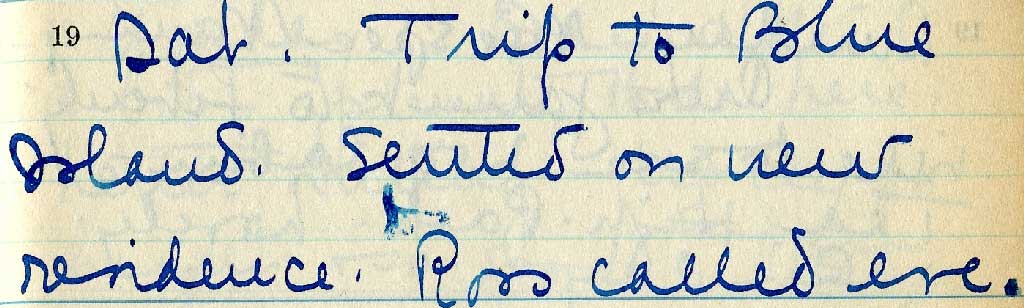 19 Sat. Trip to Blue
Island. Settled on new
residence. Ross called eve.